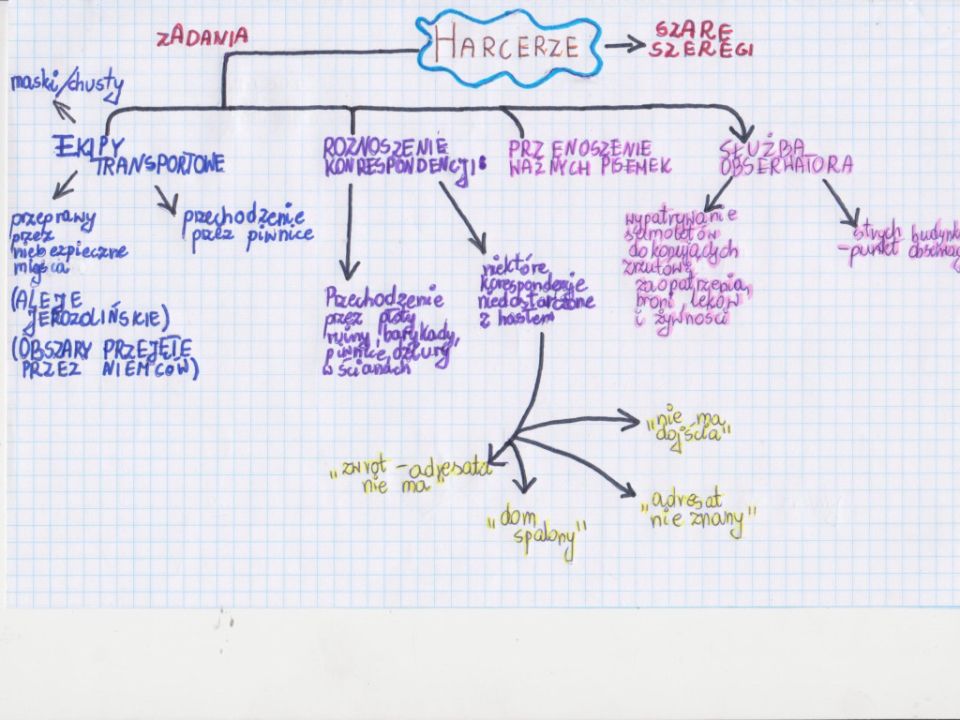 ZADANIA
HARCERZE
SZARE
SZEREGI
maski/chusty
EKIPY
TRANSPORTOWE
przeprawy
przez
niebezpieczne
miejsca
(ALEJE
JEROZOLIŃSKIE)
(OBSZARY PRZEJĘTE
PRZEZ NIEMCÓW)
przechodzenie
przez piwnice
ROZNOSZENIE
KORESPONDENCJI
Przechodzenie
przez płoty
ruiny, barykady,
piwnice, dziury
w ścianach
niektóre
korespondencje
niedostarczone
z hasłem
"zwrot - adresata
nie ma"
"dom
spalony"
"adresat
nie znany"
"nie ma
dojścia"
PRZENOSZENIE
WAŻNYCH PISEMEK
SŁUŻBA
OBSERWATORA
wypatrywanie
samolotów
dokonujących
zrzutów
zaopatrzenia,
broni, leków
i żywności
strych budynku
- punkt